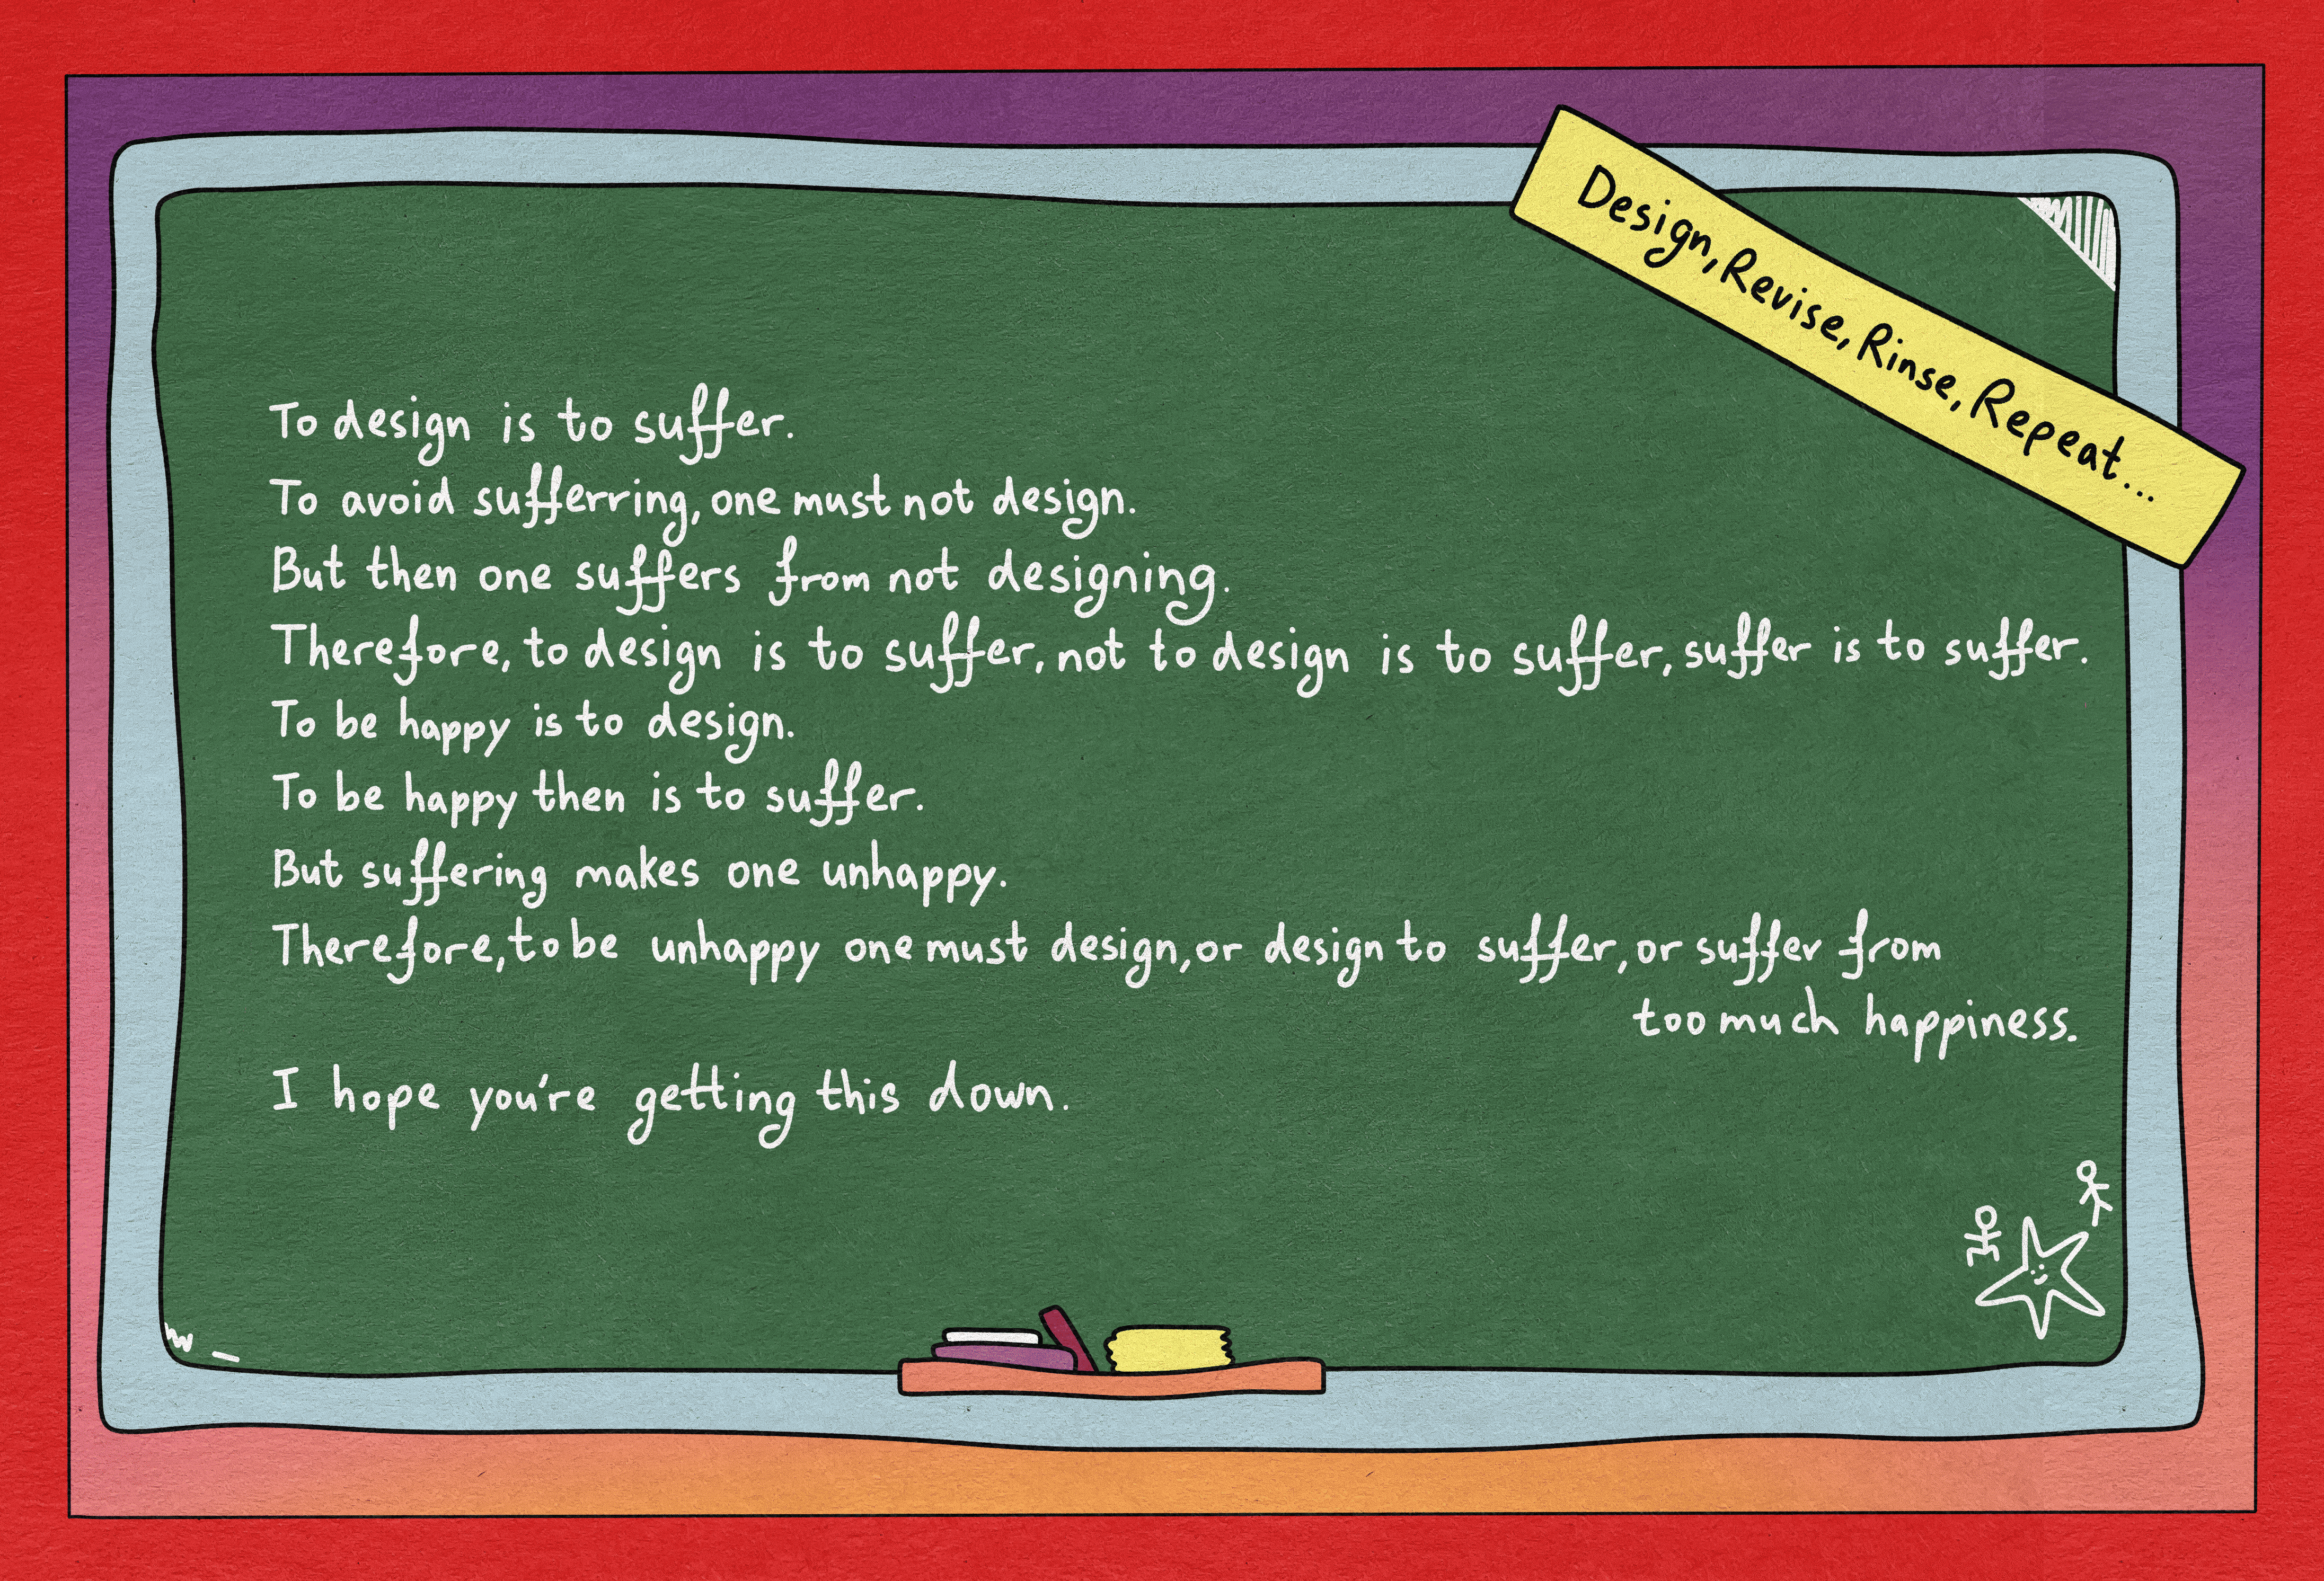 Design, Revise, Rinse, Repeat...
To design is to suffer.
To avoid sufferring, one must not design.
But then one suffers from not designing.
Therefore, to design is to suffer, not to design is to suffer, suffer is to suffer.
To be happy is to design.
To be happy then is to suffer.
But suffering makes one unhappy.
Therefore, to be unhappy one must design, or design to suffer, or suffer from
too much happiness.
I hope you're getting this down.